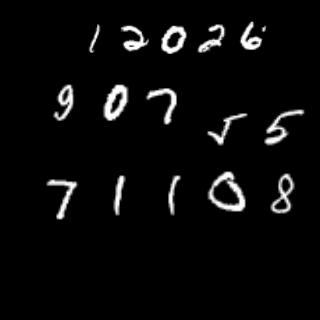 12026
90755
71108